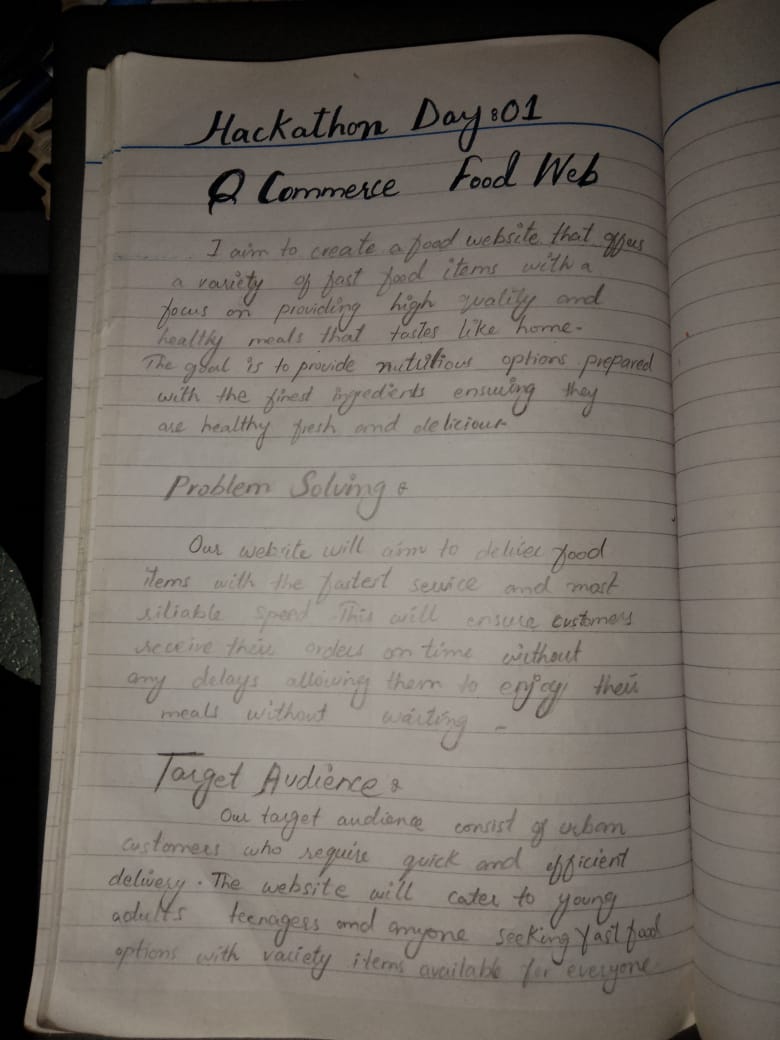 Hackathon Day:01
Q Commerce Food Web
I aim to create a food website that offers
a variety of fast food items with a
focus on providing high quality and
healthy meals that tastes like home.
The goal is to provide nutritious options prepared
with the finest ingredients ensuring they
are healthy fresh and delicious
Problem Solving:
Our website will aim to deliver food
items with the fastest service and most
riliable speed. This will ensure customers
receive their orders on time without
any delays allowing them to enjoy their
meals without waiting -
Target Audience:
Our target audience consist of urban
customers who require quick and efficient
delivery. The website will cater to young
adults teenagers and anyone seeking fast food
options with variety items available for everyone.